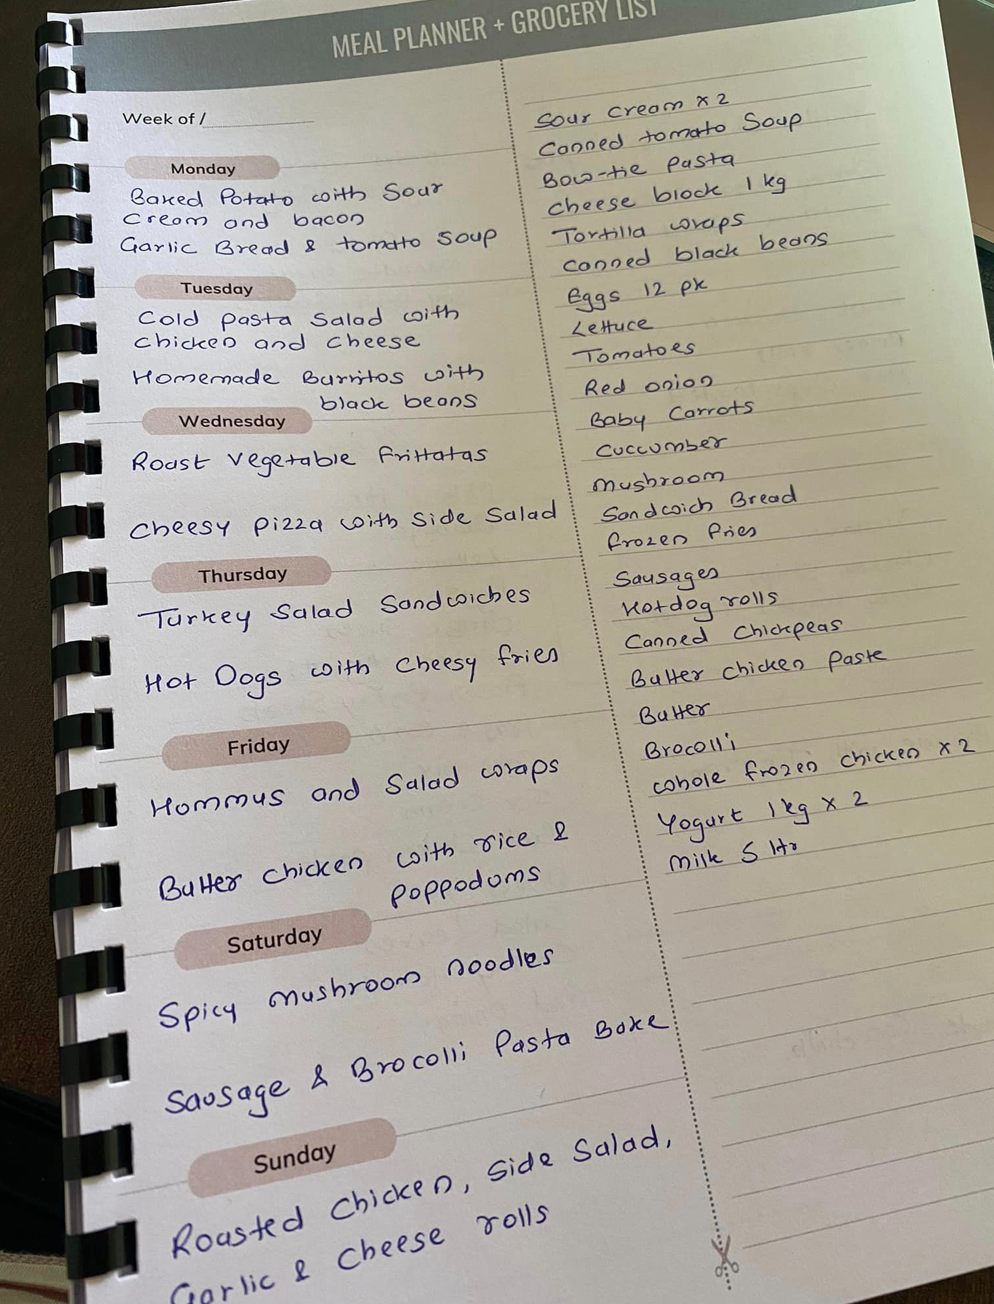 MEAL PLANNER + GROCERY LIST
Week of /
Monday
Baked Potato with Sour
Cream and bacon
Garlic Bread & tomato Soup
Tuesday
Cold Pasta Salad with
chicken and cheese
Homemade Burritos with
black beans
Wednesday
Roast vegetable Frittatas
Cheesy Pizza with Side Salad
Thursday
Turkey Salad Sandwiches
Hot Dogs with Cheesy fries
Friday
Hommus and Salad wraps
Butter Chicken with rice &
Poppodoms
Saturday
Spicy mushroom noodles
Sausage & Brocolli Pasta Bake
Sunday
Roasted Chicken, Side Salad,
Garlic & Cheese rolls
Sour Cream x 2
Canned tomato Soup
Bow-tie Pasta
Cheese block 1 kg
Tortilla wraps
Canned black beans
Eggs 12 pk
Lettuce
Tomatoes
Red onion
Baby Carrots
Cuccumber
Mushroom
Sandwich Bread
Frozen Fries
Sausages
Hotdog rolls
Canned Chickpeas
Butter Chicken Paste
Butter
Brocolli
Whole frozen chicken x 2
Yogurt 1kg x 2
Milk 5 ltr